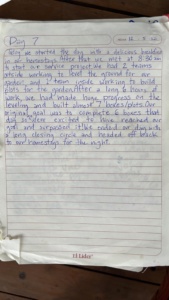 Day 7
Today we started the day with a delicious breakfast
in our homestays. After that we met at 8:30 am
to start our service project. We had 2 teams
inside working to level the ground for our
garden, and a team inside working to build
plots for the garden. After a long 6 hours of
work, we had made huge progress on the
leveling and built almost 7 boxes/plots. Our
original goal was to complete 6 boxes that
day, so were excited to have reached our
goal and surpassed it! We ended our day with
a long closing cycle and headed off back
to our homestays for the night.